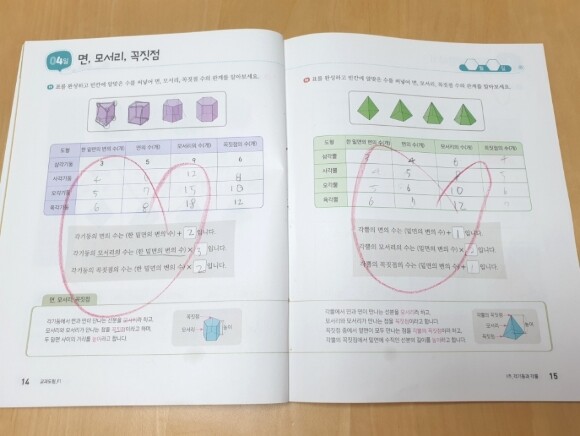 04일 면, 모서리, 꼭짓점
표를 완성하고 빈칸에 알맞은 수를 써넣어 면, 모서리, 꼭짓점 수의 관계를 알아보세요.
도형 한 밑면의 변의 수(개) 면의 수(개) 모서리의 수(개) 꼭짓점의 수(개)
삼각기둥 3 5 9 6
사각기둥 12 8
오각기둥 5 7 15 10
육각기둥 6 8 18 12
각기둥의 면의 수는 (한 밑면의 변의 수) + 2 입니다.
각기둥의 모서리의 수는 (한 밑면의 변의 수) × 3 입니다.
각기둥의 꼭짓점의 수는 (한 밑면의 변의 수) × 2 입니다.
면, 모서리, 꼭짓점
각기둥에서 면과 면이 만나는 선분을 모서리라 하고,
모서리와 모서리가 만나는 점을 꼭짓점이라고 하며,
두 밑면 사이의 거리를 높이라고 합니다.
꼭짓점
모서리
높이
14
표를 완성하고 빈칸에 알맞은 수를 써넣어 면, 모서리, 꼭짓점 수의 관계를 알아보세요.
도형 밑면의 변의 수(개) 면의 수(개) 모서리의 수(개) 꼭짓점의 수(개)
삼각뿔 3 4 6
사각뿔 5 8
오각뿔 6 10
육각뿔 6 7 12
각뿔의 면의 수는 (밑면의 변의 수) + 1 입니다.
각뿔의 모서리의 수는 (밑면의 변의 수) × 2 입니다.
각뿔의 꼭짓점의 수는 (밑면의 변의 수) + 1 입니다.
각뿔에서 면과 면이 만나는 선분을 모서리라 하고,
모서리와 모서리가 만나는 점을 꼭짓점이라고 합니다.
꼭짓점 중에서 옆면이 모두 만나는 점을 각뿔의 꼭짓점이라 하고,
각뿔의 꼭짓점에서 밑면에 수직인 선분의 길이를 높이라고 합니다.
각뿔의 꼭짓점
모서리
높이
꼭짓점
15